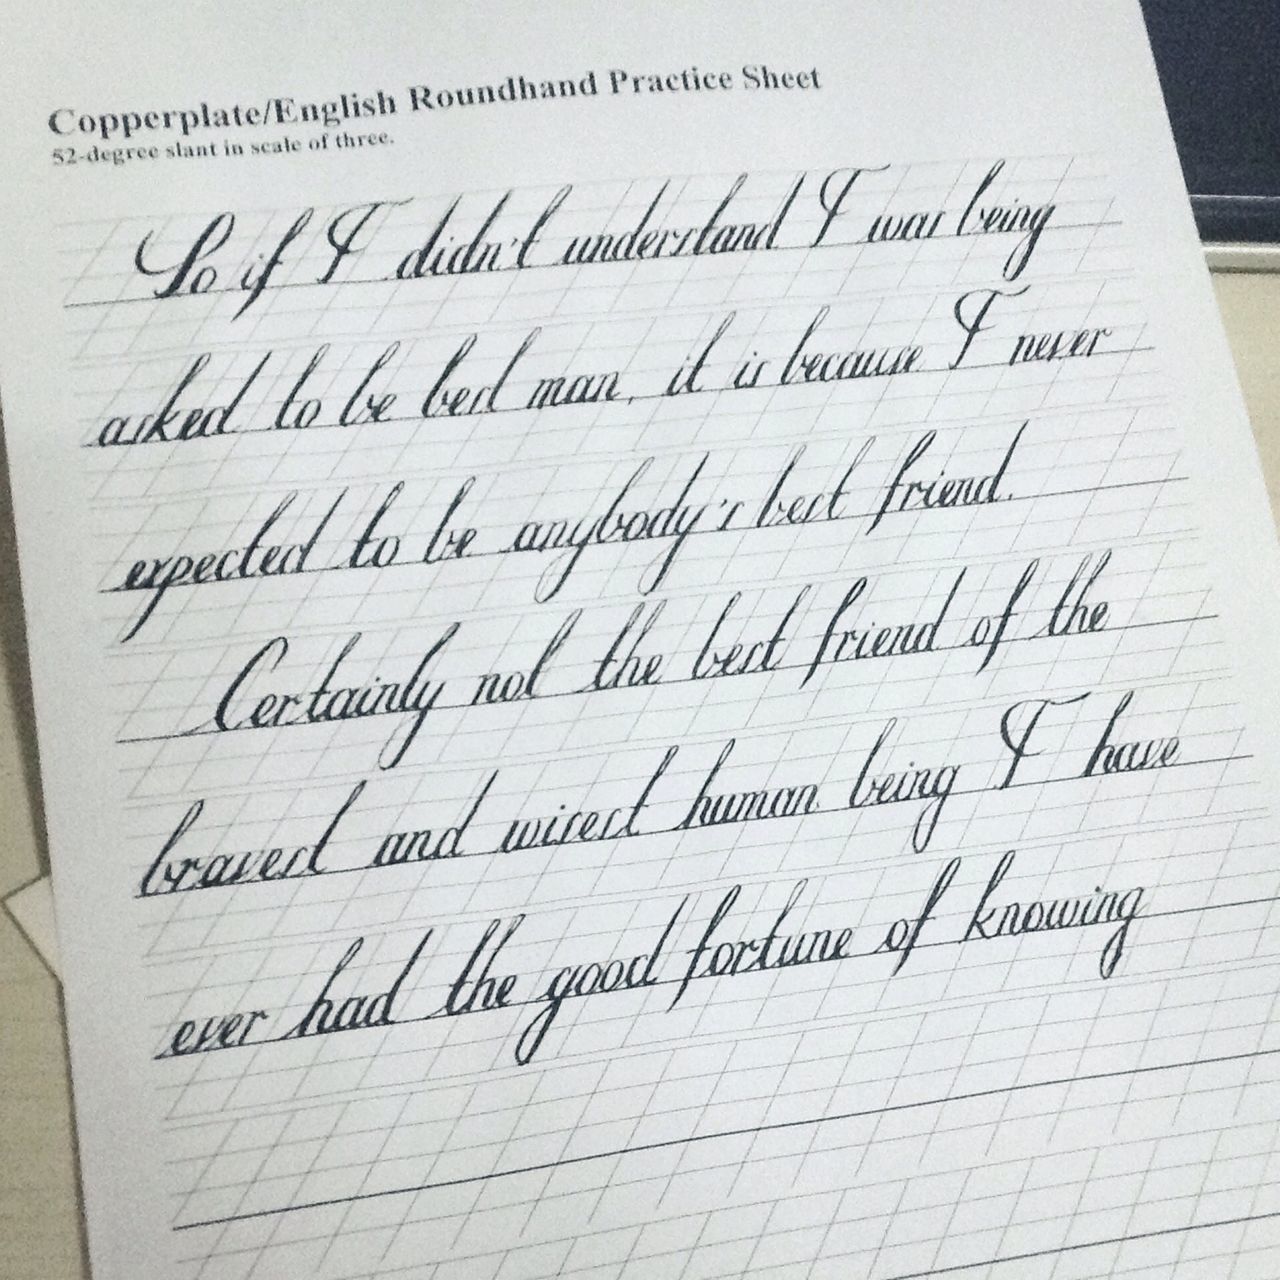 Copperplate/English Roundhand Practice Sheet
52-degree slant in scale of three.
So if I didn't understand I was being
asked to be best man, it is because I never
expected to be anybody's best friend.
Certainly not the best friend of the
bravest and wisest human being I have
ever had the good fortune of knowing